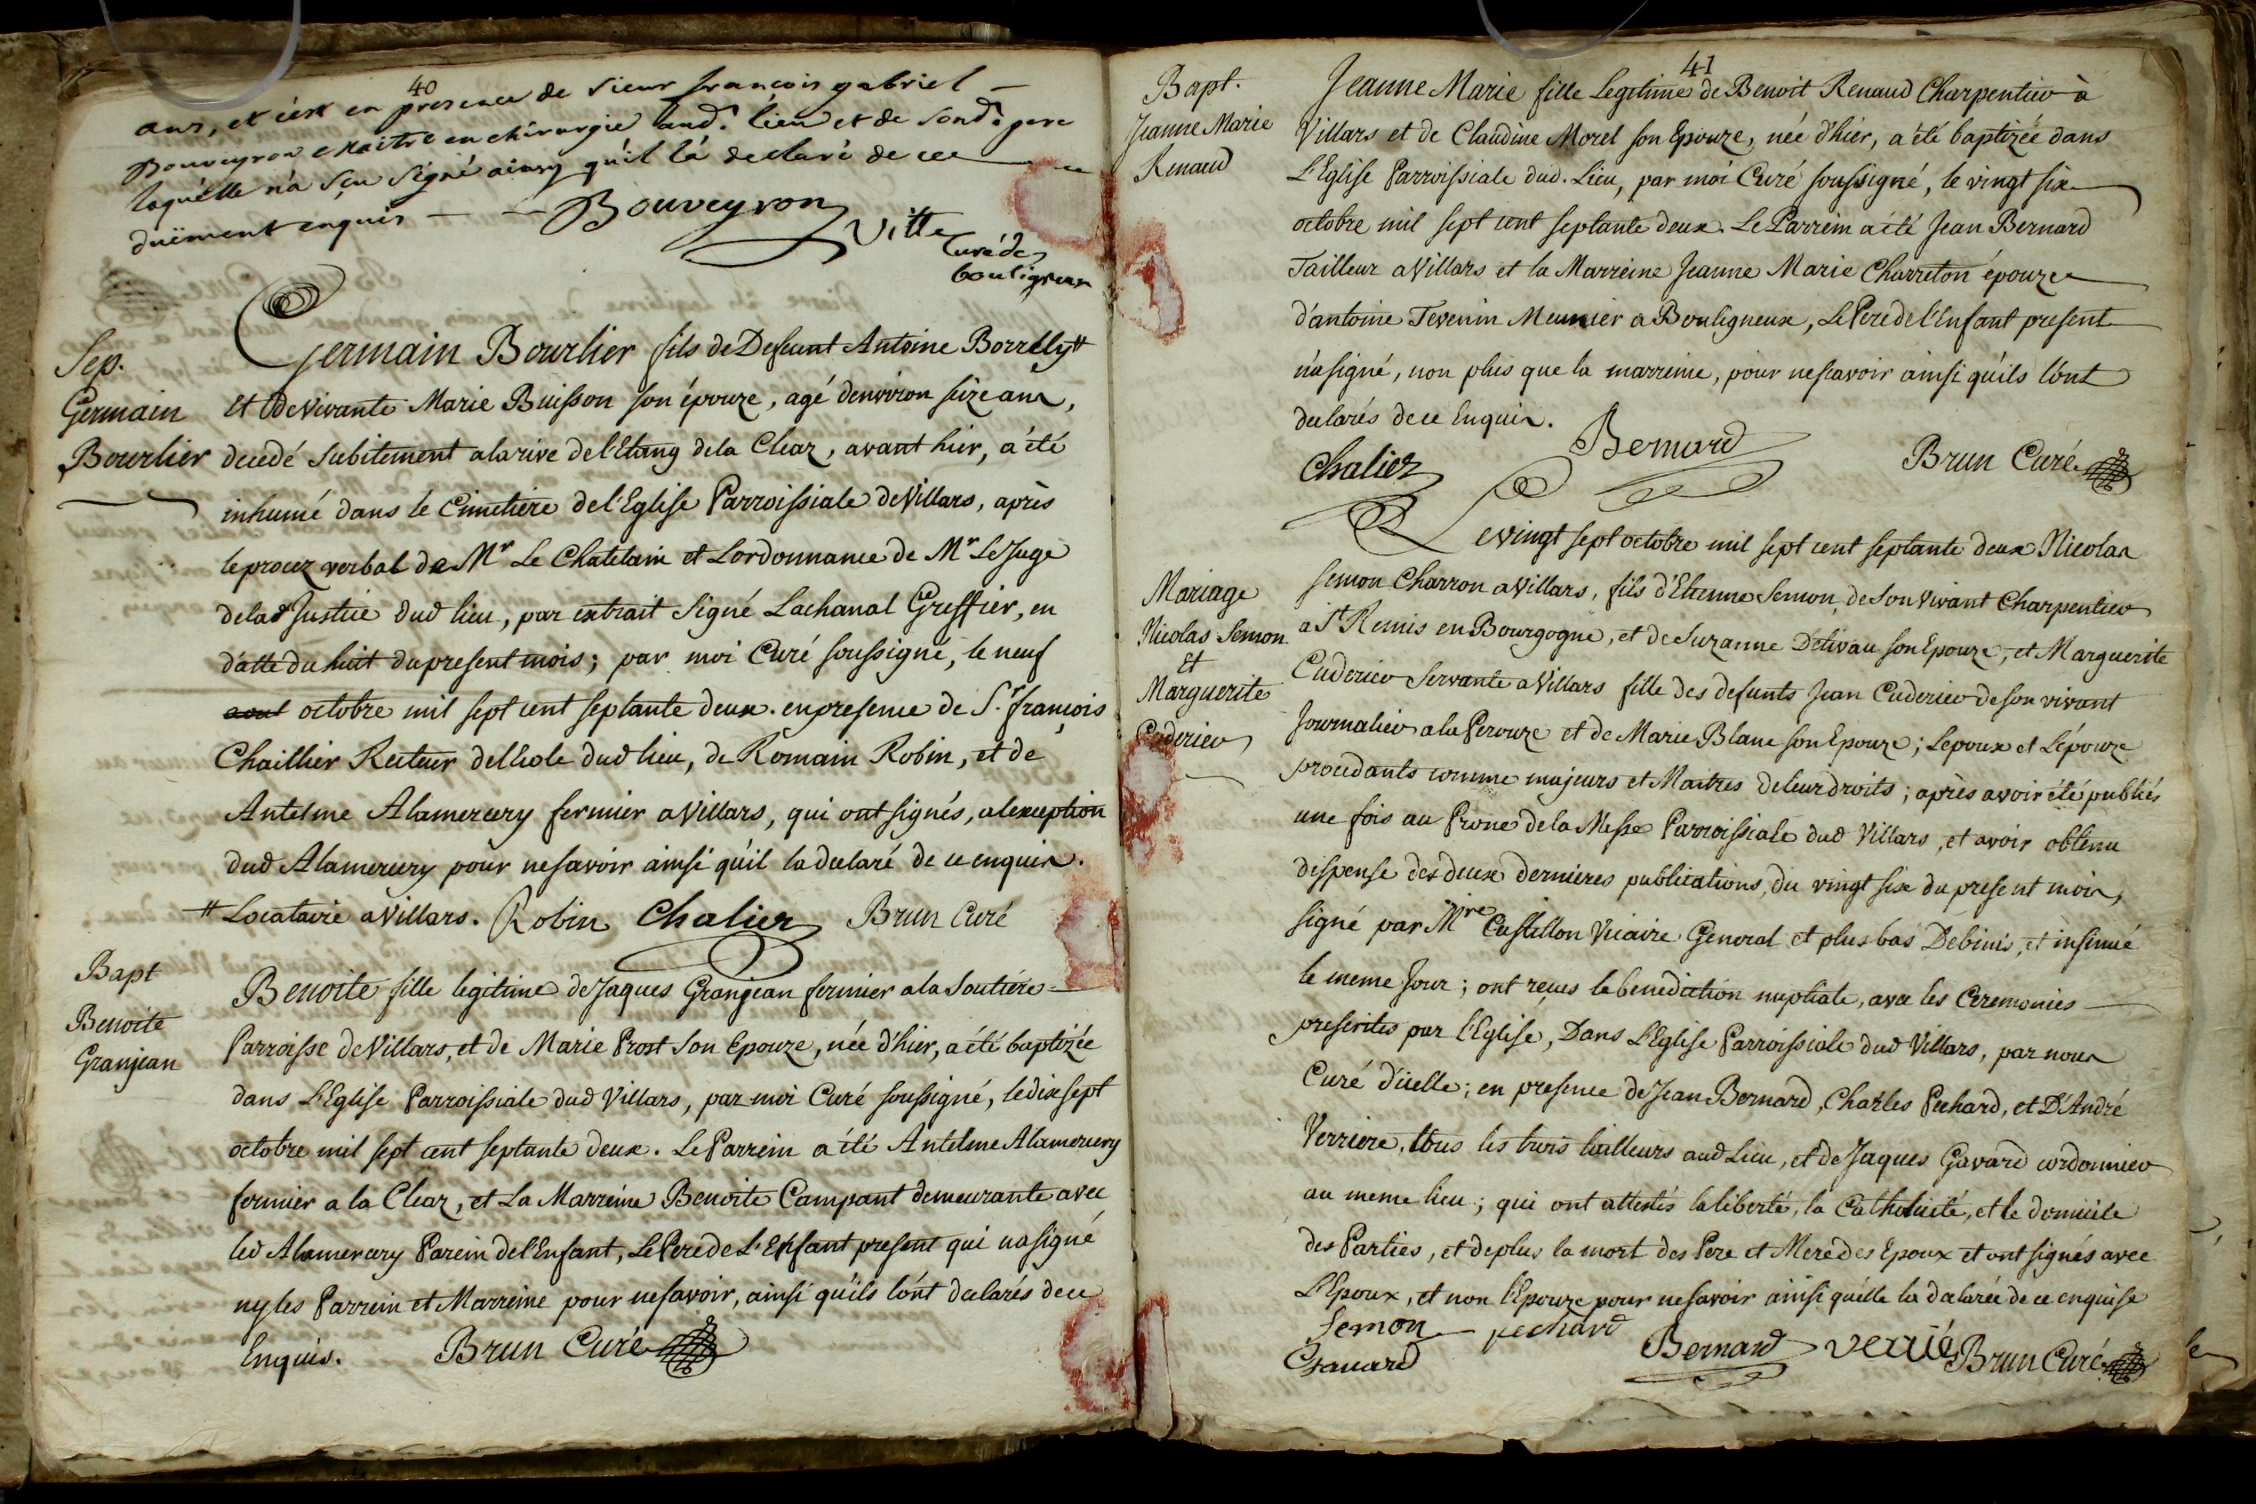 40
ans, et c'est en presence de sieur françois gabriel
Bouveyron maitre en chirurgie aud. lieu et de sond. pere
laquelle n'a sçu signé ainsy qu'il l'a declaré de ce
duëment enquis
Bouveyron
Vitte
Curé de
bouligneux
Sep.
Germain
Bourlier
Germain Bourlier fils de Defeunt Antoine Borrely #
et de vivante Marie Buisson son épouze, agé denviron seize ans,
decedé subitement a la rive de l'Etang de la Cleaz, avant hier, a été
inhumé dans le Cimetiere de l'Eglise Parroissiale de Villars, après
le procez verbal de Mr Le Chatelain et Lordonnance de Mr Le Juge
de lad Justice dud lieu, par extrait signé Lachanal Greffier, en
datte du huit du present mois; par moi Curé soussigné, le neuf
aout octobre mil sept cent septante deux. en presence de Sr. françois
Chaillier Recteur de l'Ecole dud lieu, de Romain Robin, et de
Antelme Alamercery fermier a Villars, qui ont signés, a lexception
dud Alamercery pour ne savoir ainsi qu'il la declaré de ce enquis.
# Locataire a Villars. Robin Chalier Brun Curé
Bapt
Benoite
Granjean
Benoite fille legitime de Jaques Granjean fermier a la Sautière
Parroisse de Villars, et de Marie Prost son Epouze, née d'hier, a été baptizée
dans L'Eglise Parroissiale dud Villars, par moi Curé soussigné, le dix sept
octobre mil sept cent septante deux. Le Parrein a été Antelme Alamercery
fermier a la Cleaz, et La Marreine Benoite Campant demeurante avec
led Alamercery Parein de l'Enfant, Le Pere de L'Enfant present qui na signé
ny les Parrein et Marreine pour ne savoir, ainsi qu'ils l'ont declarés de ce
Enquis. Brun Curé
41
Bapt.
Jeanne Marie
Renaud
Jeanne Marie fille Legitime de Benoit Renaud Charpentier à
Villars et de Claudine Morel son Epouze, née d'hier, a été baptizée dans
L'Eglise Parroissiale dud. Lieu, par moi Curé soussigné, le vingt six
octobre mil sept cent septante deux. Le Parrein a été Jean Bernard
Tailleur a Villars et la Marreine Jeanne Marie Charreton épouze
d'antoine Tevenin Meunier a Bouligneux, Le Pere de l'Enfant present
n'a signé, non plus que la marreine, pour ne scavoir ainsi qu'ils l'ont
declarés de ce Enquis.
Chalier Bernard Brun Curé
Mariage
Nicolas Semon
et
Marguerite
Cuderier
Le vingt sept octobre mil sept cent septante deux Nicolas
Semon Charron a Villars, fils d'Etienne Semon, de son vivant Charpentier
a St Remis en Bourgogne, et de Suzanne Delivau son Epouze, et Marguerite
Cuderier Servante a Villars fille des defunts Jean Cuderier de son vivant
Journalier a la Perouze et de Marie Blanc son Epouze; L'epoux et L'épouze
procedants comme majeurs et Maitres de leur droits; après avoir été publiés
une fois au Prone de la Messe Parroissiale dud Villars, et avoir obtenu
dispense des deux dernieres publications, du vingt six du present mois,
signé par Mre Castillon Vicaire General et plus bas Debinis, et insinué
le meme Jour; ont reçues la benediction nuptiale, avec les Ceremonies
prescrites par l'Eglise, Dans L'Eglise Parroissiale dud Villars, par nous
Curé d'icelle; en presence de Jean Bernard, Charles Pechard, et D'André
Verriere, tous les trois tailleurs aud Lieu, et de Jaques Gavard cordonnier
au meme lieu; qui ont attestés la liberté, la Catholicité, et le domicile
des Parties, et de plus la mort des Pere et Mere des Epoux et ont signés avec
L'Epoux, et non l'Epouze pour ne savoir ainsi qu'elle la declarée de ce enquise
Semon pechard Bernard verrié Brun Curé
Gavard
le